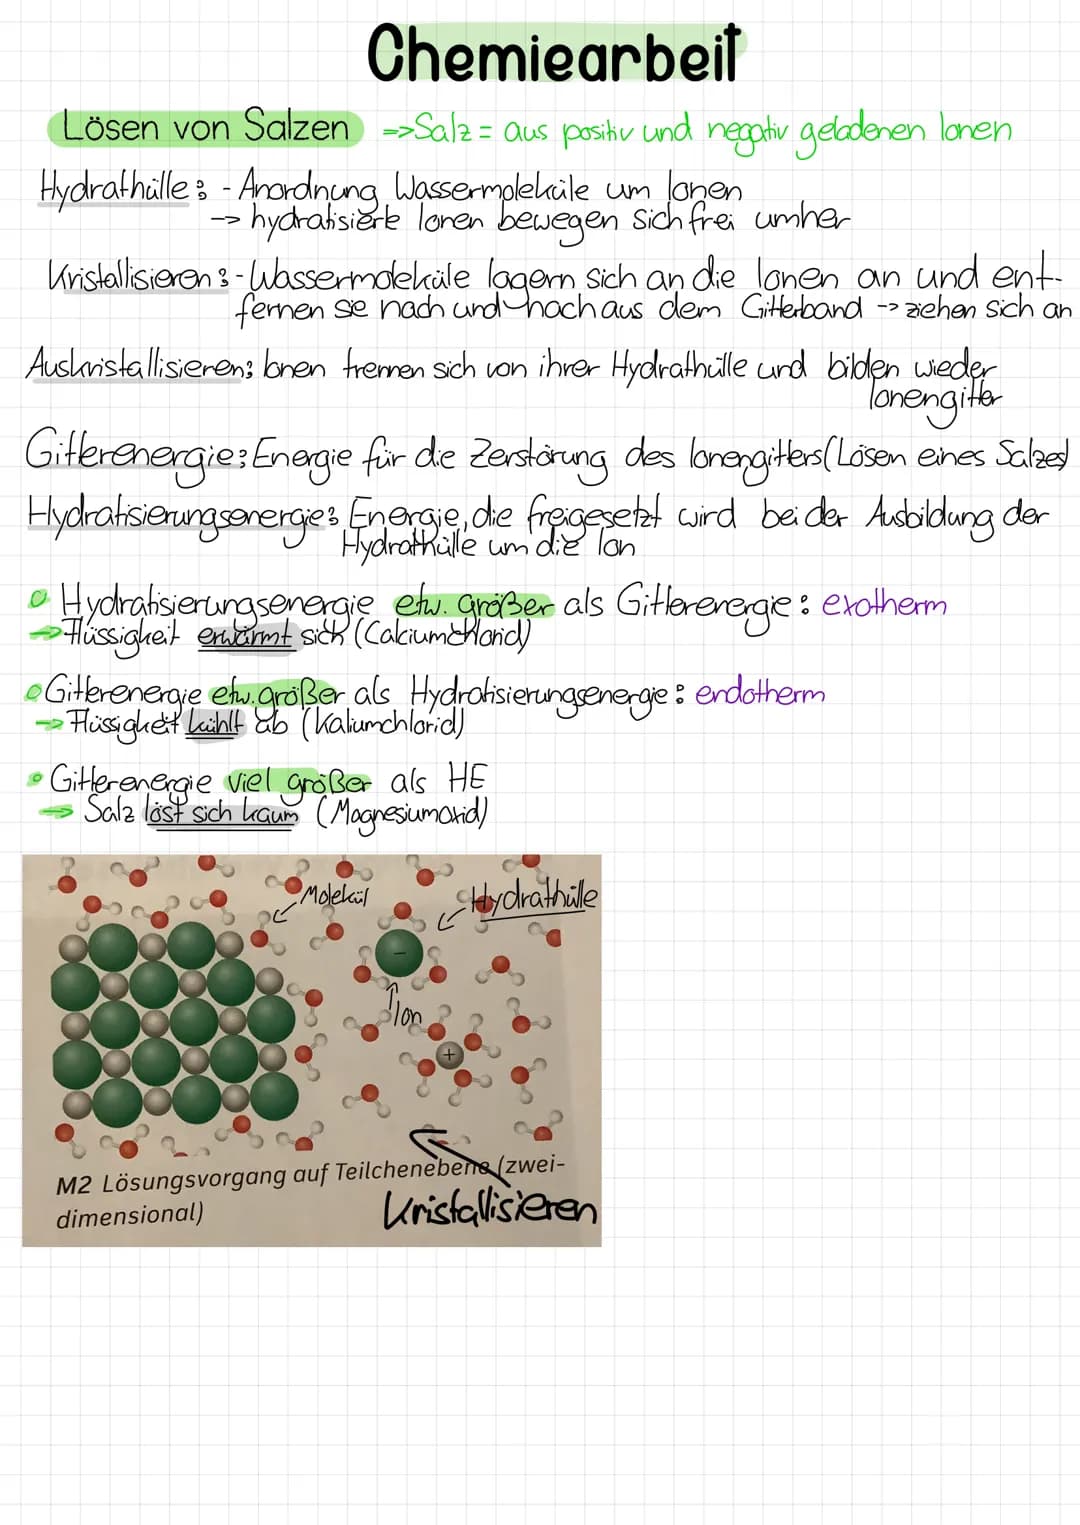 Chemiearbeit
Lösen von Salzen => Salz = aus positiv und negativ geladenen Ionen
Hydrathülle: - Anordnung Wassermoleküle um Ionen
-> hydratisierte Ionen bewegen sich frei umher
Kristallisieren: - Wassermoleküle lagern sich an die Ionen an und ent-
fernen sie nach und nach aus dem Gitterband -> ziehen sich an
Auskristallisieren: Ionen trennen sich von ihrer Hydrathülle und bilden wieder
Ionengitter
Gitterenergie: Energie für die Zerstörung des Ionengitters (Lösen eines Salzes)
Hydratisierungsenergie: Energie, die freigesetzt wird bei der Ausbildung der
Hydrathülle um die Ion
Hydratisierungsenergie etw. größer als Gitterenergie: exotherm
-> Flüssigkeit erwärmt sich (Calciumchlorid)
Gitterenergie etw. größer als Hydratisierungsenergie: endotherm
-> Flüssigkeit kühlt ab (Kaliumchlorid)
Gitterenergie viel größer als HE
-> Salz löst sich kaum (Magnesiumoxid)
Molekül
Hydrathülle
-
Ion
+
M2 Lösungsvorgang auf Teilchenebene (zwei-
dimensional)
Kristallisieren